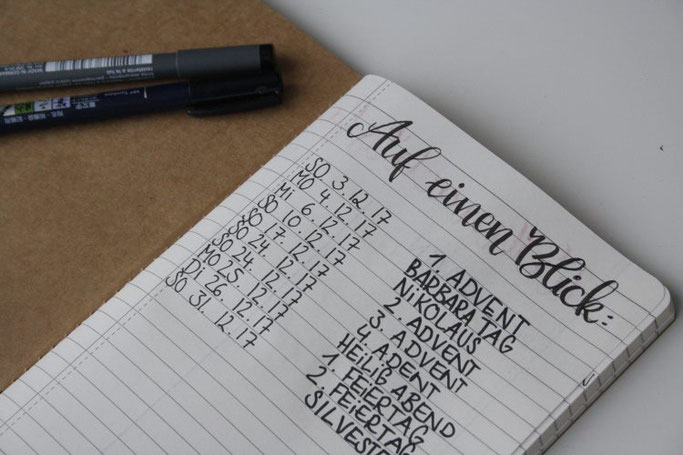 Auf einen Blick:
SO 3.12.17 1. ADVENT
MO 4.12.17 BARBARATAG
Mi 6.12.17 NIKOLAUS
SO 10.12.17 2. ADVENT
SO 17.12.17 3. ADVENT
SO 24.12.17 4. ADENT
SO 24.12.17 HEILIG ABEND
MO 25.12.17 1. FEIERTAG
Di 26.12.17 2. FEIERTAG
SO 31.12.17 SILVESTE